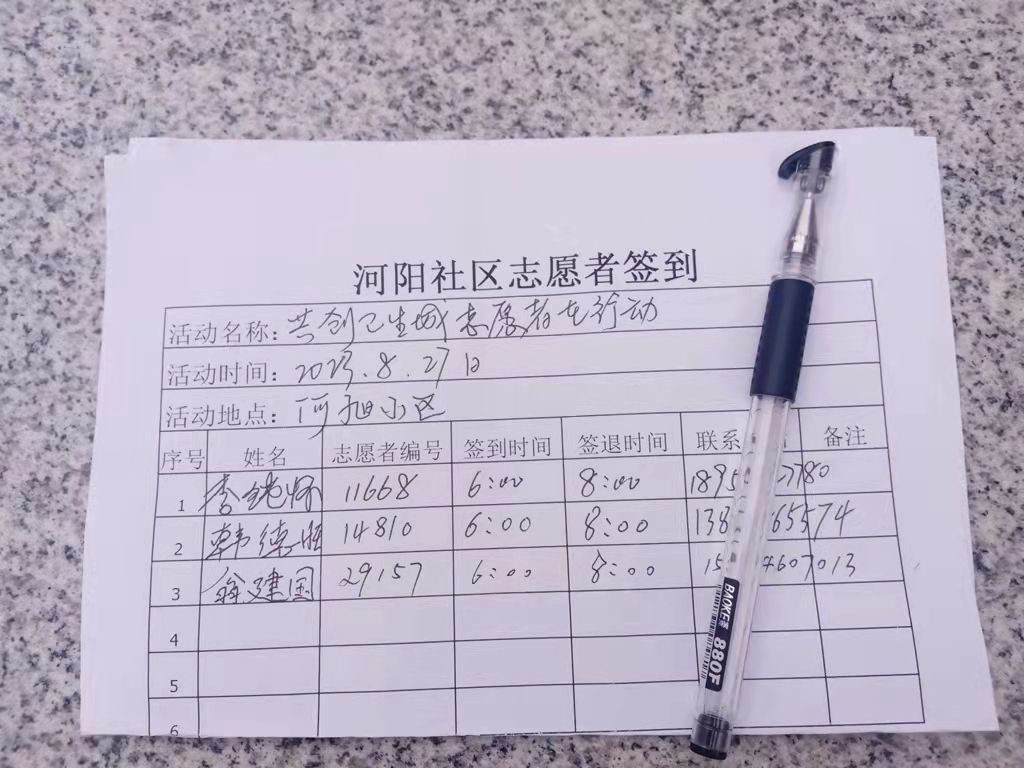 河阳社区志愿者签到
活动名称：共创卫生城志愿者在行动
活动时间：2023.8.27日
活动地点：河旭小区
序号 姓名 志愿者编号 签到时间 签退时间 联系 备注
1 李 11668 6:00 8:00 1895 2780
2 韩德 14810 6:00 8:00 138 65574
3 翁建国 29157 6:00 8:00 15 4607013
4
5
6
BAOKE 880F